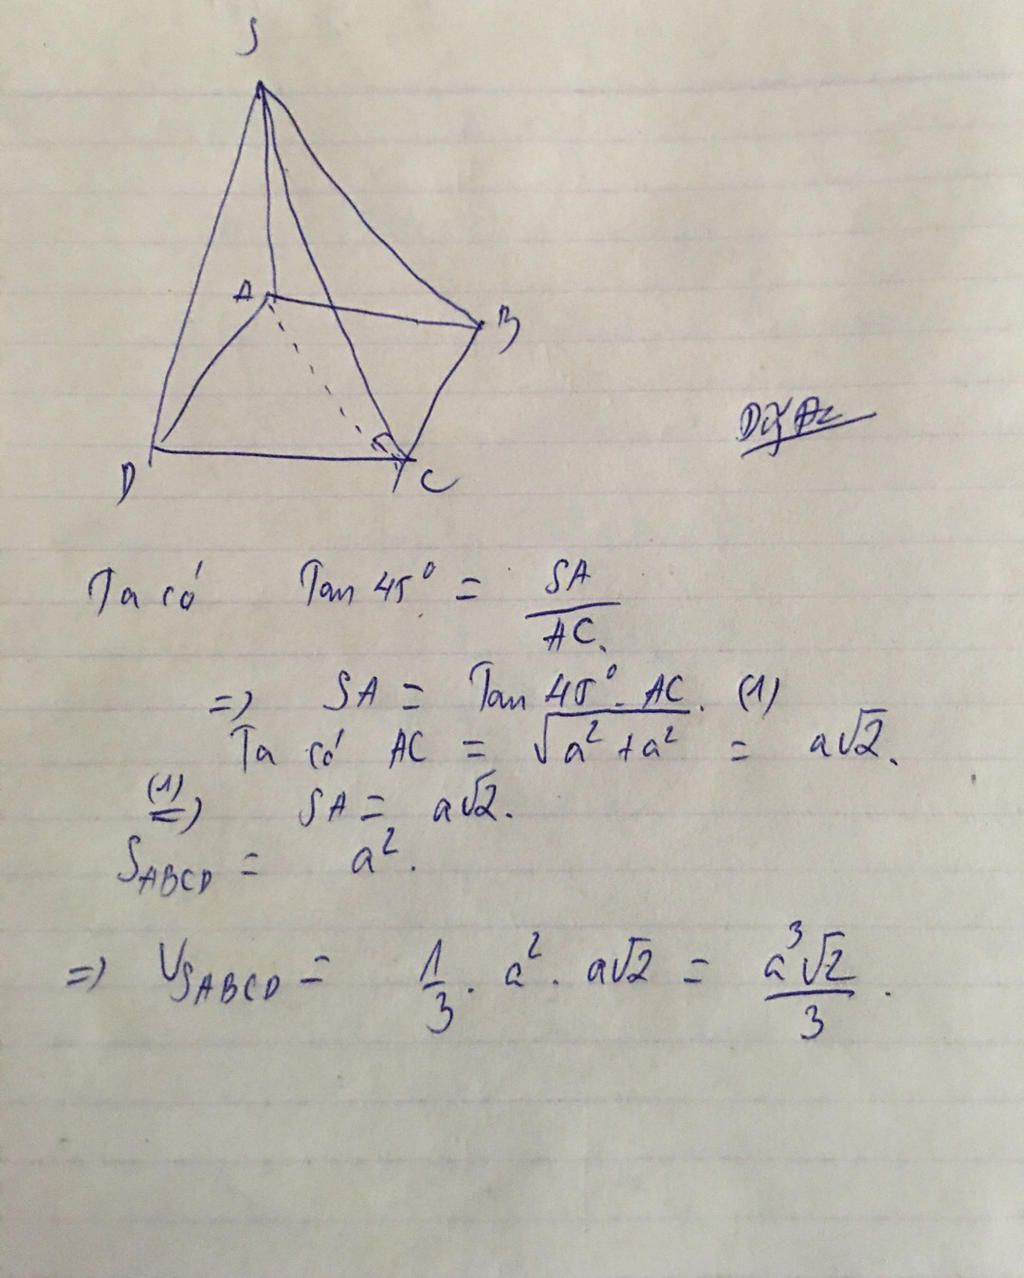 S
A
B
D
C
Ta có Tan 45° = SA / AC.
=> SA = Tan 45° . AC. (1)
Ta có AC = √(a² + a²) = a√2.
(1) => SA = a√2.
S_ABCD = a².
=> V_SABCD = 1/3 . a² . a√2 = a³√2 / 3 .